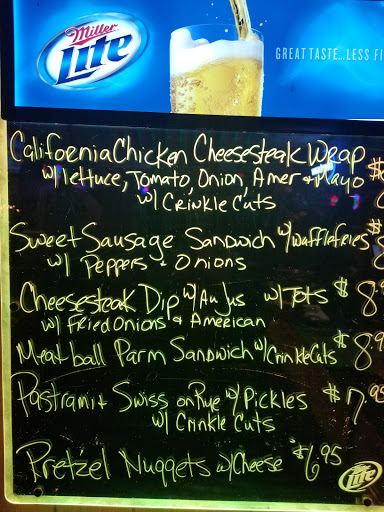 Miller
Lite
GREAT TASTE...LESS FI
California Chicken Cheesesteak Wrap $
w/ lettuce, Tomato, Onion, Amer + Mayo
w/ Crinkle Cuts
Sweet Sausage Sandwich w/ waffle fries $
w/ Peppers + Onions 8
Cheesesteak Dip w/ Au Jus w/ Tots $
w/ Fried Onions & American 8.
Meatball Parm Sandwich w/ Crinkle Cuts $8.9
Pastrami + Swiss on Rye w/ Pickles $7.95
w/ Crinkle Cuts
Pretzel Nuggets w/ Cheese $6.95
Lite